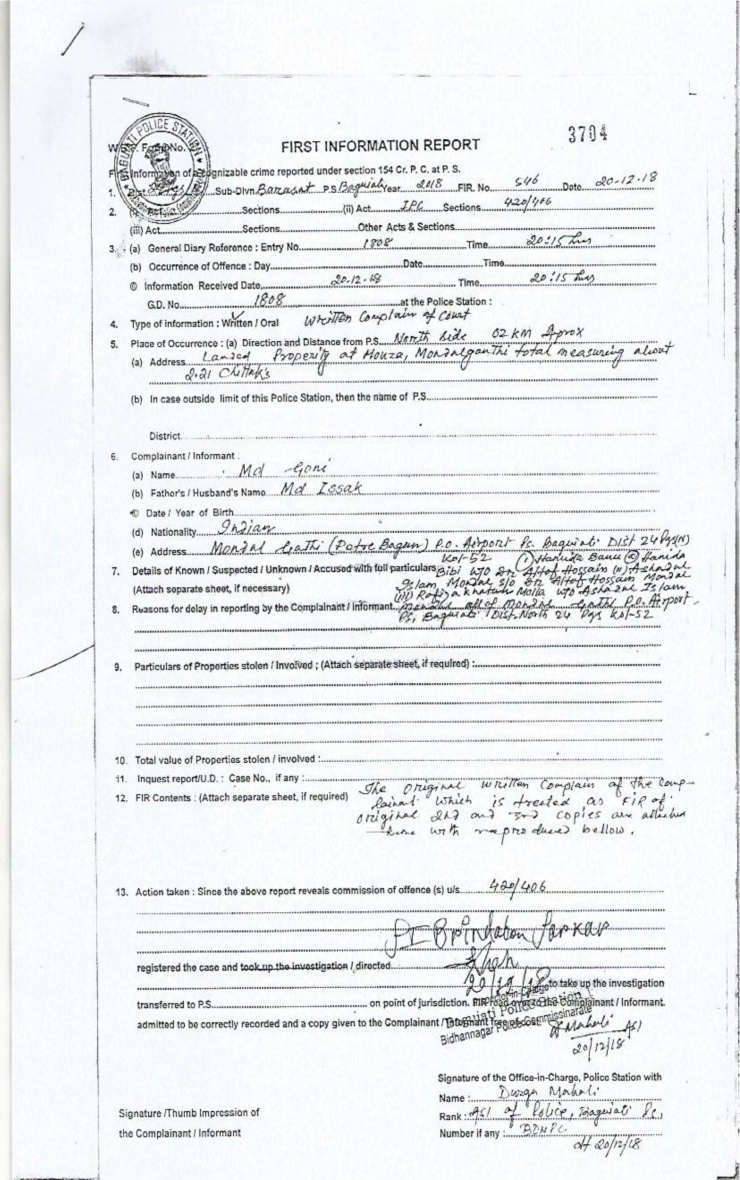 3704
BAGUIATI POLICE STATION
FIRST INFORMATION REPORT
First Information of a cognizable crime reported under section 154 Cr. P. C. at P. S.
1. Sub-Divn. Barasat P.S. Baguiati Year 2018 FIR. No. 546 Date 20-12-18
2. Sections (ii) Act IPC Sections 420/406
(iii) Act Sections Other Acts & Sections
3. (a) General Diary Reference : Entry No. 1808 Time 20:15 hrs
(b) Occurrence of Offence : Day Date Time
© Information Received Date 20-12-18 Time 20:15 hrs
G.D. No. 1808 at the Police Station :
4. Type of information : Written / Oral Written Complain of Court
5. Place of Occurrence : (a) Direction and Distance from P.S. North Side 02 KM Aprox
(a) Address Landed Property at Mouza, Mondalganthi total measuring about
2.21 Chittak's
(b) In case outside limit of this Police Station, then the name of P.S.
District
6. Complainant / Informant :
(a) Name Md Goni
(b) Father's / Husband's Name Md Issak
© Date / Year of Birth
(d) Nationality Indian
(e) Address Mondal Gathi (Potre Bagun) P.O. Airport Ps. Baguiati Dist 24 Pgs(N)
Kol-52 (i) Banu @ Hamida
7. Details of Known / Suspected / Unknown / Accused with full particulars Bibi w/o Altaf Hossain (ii) Ashadul
(Attach separate sheet, if necessary) Islam Mondal s/o Altaf Hossain Mondal
(iii) Rafiza Khatun Molla w/o Ashadul Islam
8. Reasons for delay in reporting by the Complainant / Informant Mondal all of Mondal Gathi P.O. Airport
Ps, Baguiati Dist. North 24 Pgs Kol-52
9. Particulars of Properties stolen / Involved ; (Attach separate sheet, if required) :
10. Total value of Properties stolen / involved :
11. Inquest report/U.D. : Case No., if any :
12. FIR Contents : (Attach separate sheet, if required) The original written complain of the comp-
lainat which is treated as FIR of
original 2nd and 3rd copies are attached
here with reproduced bellow.
13. Action taken : Since the above report reveals commission of offence (s) u/s 420/406
SI Brindabon Sarkar
registered the case and took up the investigation / directed
20/12/18 to take up the investigation
transferred to P.S. on point of jurisdiction. FIR read over to the Complainant / Informant.
admitted to be correctly recorded and a copy given to the Complainant / Informant free of cost.
Baguiati Police Station
Bidhannagar Police Commissionarate
D Mahali ASI
20/12/18
Signature of the Office-in-Charge, Police Station with
Name : Durga Mahali
Rank : ASI of Police, Baguiati Ps,
Number if any : BDNPC
dt 20/12/18
Signature /Thumb Impression of
the Complainant / Informant